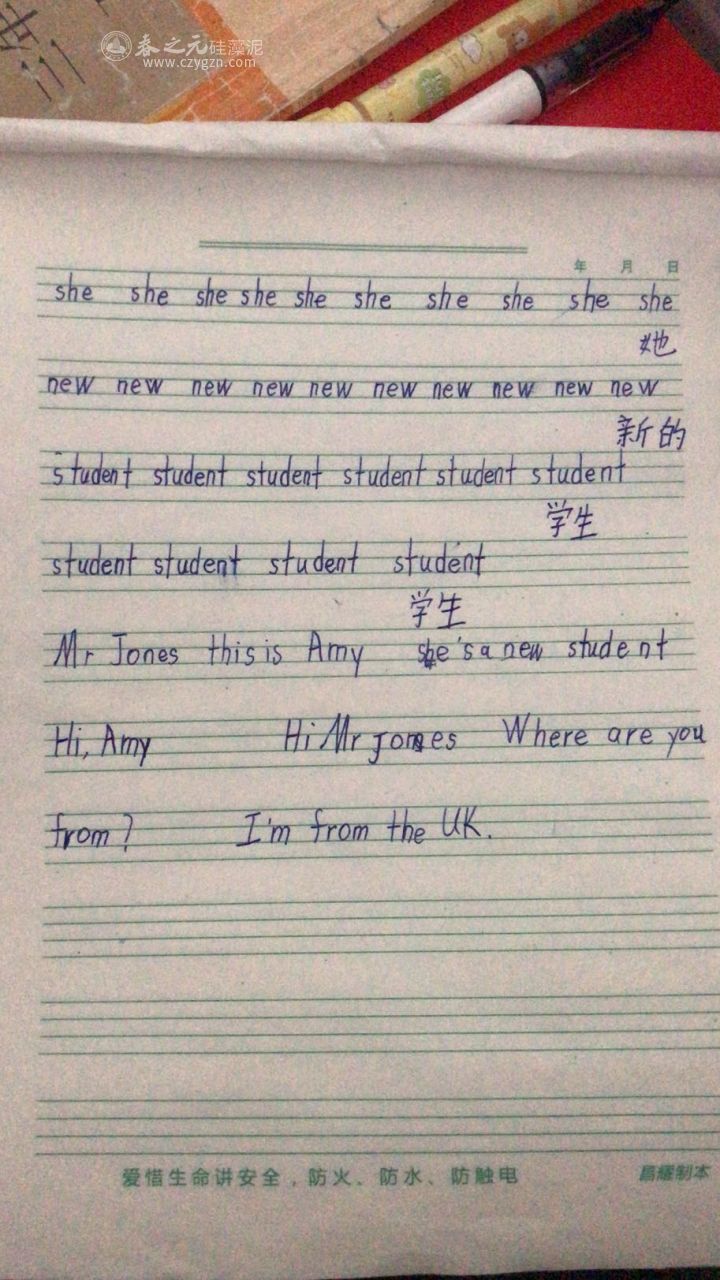 春之元硅藻泥
www.czygzn.com
年 月 日
she she she she she she she she she she
她
new new new new new new new new new new
新的
student student student student student student
学生
student student student student
学生
Mr Jones this is Amy she's a new student
Hi, Amy Hi Mr Jones Where are you
from? I'm from the UK.
爱惜生命讲安全，防火、防水、防触电 昌耀制本